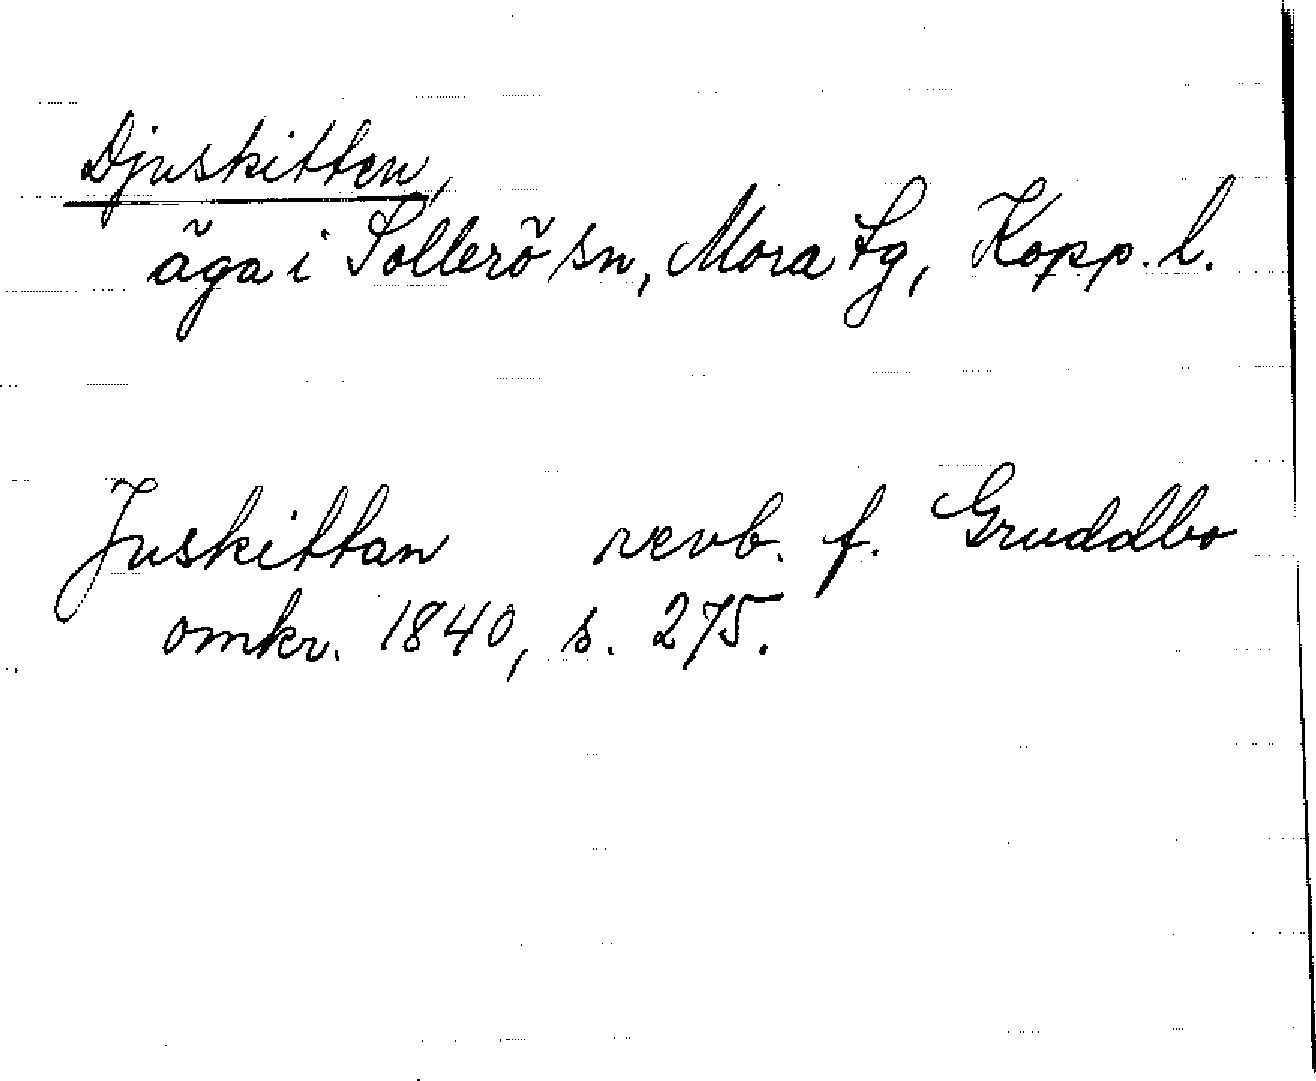 Djuskitten,
äga i Sollerö sn, Mora tg, Kopp. l.
Juskittan revb. f. Gruddbo
omkr. 1840, s. 275.